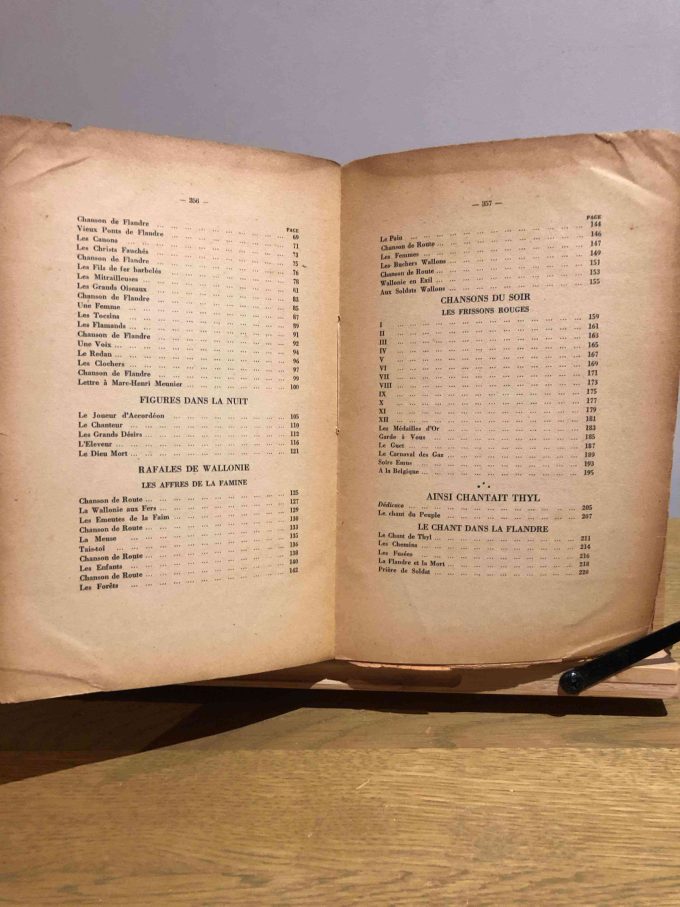 — 356 —
PAGE
Chanson de Flandre
Vieux Ponts de Flandre ... 69
Les Canons ... 71
Les Christs Fauchés ... 73
Chanson de Flandre ... 75
Les Fils de fer barbelés ... 76
Les Mitrailleuses ... 78
Les Grands Oiseaux ... 81
Chanson de Flandre ... 83
Une Femme ... 85
Les Tocsins ... 87
Les Flamands ... 89
Chanson de Flandre ... 91
Une Voix ... 94
Le Redan ... 96
Les Clochers ... 97
Chanson de Flandre ... 99
Lettre à Marc-Henri Meunier ... 100
FIGURES DANS LA NUIT
Le Joueur d'Accordéon ... 105
Le Chanteur ... 110
Les Grands Désirs ... 112
L'Eleveur ... 116
Le Dieu Mort ... 121
RAFALES DE WALLONIE
LES AFFRES DE LA FAMINE
Chanson de Route ... 125
La Wallonie aux Fers ... 127
Les Emeutes de la Faim ... 129
Chanson de Route ... 130
La Meuse ... 133
Tais-toi ... 136
Chanson de Route ... 138
Les Enfants ... 140
Chanson de Route ... 142
Les Forêts
— 357 —
PAGE
Le Pain ... 144
Chanson de Route ... 146
Les Femmes ... 147
Les Buchers Wallons ... 149
Chanson de Route ... 151
Wallonie en Exil ... 153
Aux Soldats Wallons ... 155
CHANSONS DU SOIR
LES FRISSONS ROUGES
I ... 159
II ... 161
III ... 163
IV ... 165
V ... 167
VI ... 169
VII ... 171
VIII ... 173
IX ... 175
X ... 177
XI ... 179
XII ... 181
Les Médailles d'Or ... 183
Garde à Vous ... 185
Le Guet ... 187
Le Carnaval des Gaz ... 189
Soirs Emus ... 193
A la Belgique ... 195
AINSI CHANTAIT THYL
Dédicace ... 205
Le chant du Peuple ... 207
LE CHANT DANS LA FLANDRE
Le Chant de Thyl ... 211
Les Chemins ... 214
Les Fusées ... 216
La Flandre et la Mort ... 218
Prière de Soldat ... 220